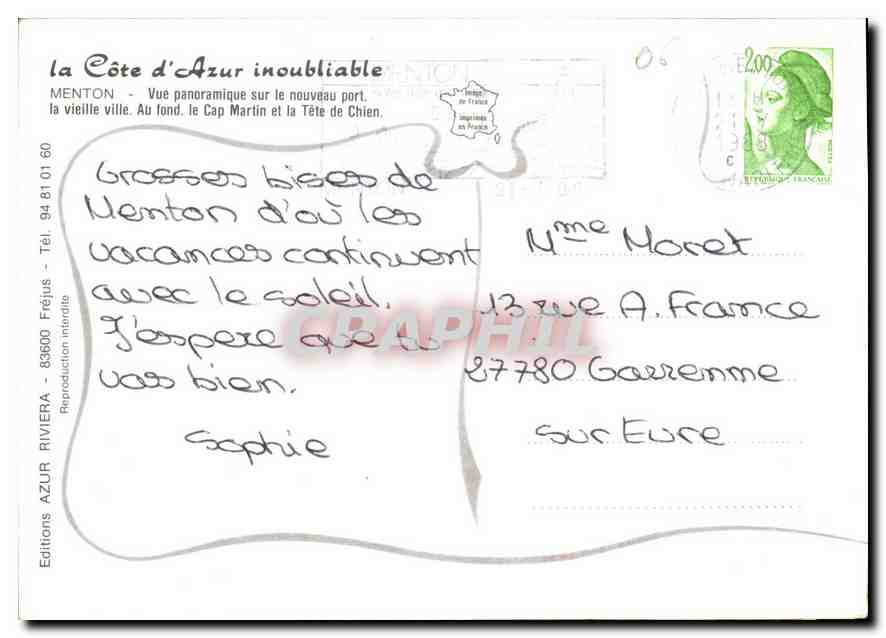 la Côte d'Azur inoubliable
MENTON - Vue panoramique sur le nouveau port,
la vieille ville. Au fond, le Cap Martin et la Tête de Chien.
Image
de France
imprimée
en France
MENTON
06
2,00
POSTES
REPUBLIQUE FRANCAISE
Grosses bises de
Menton d'où les
vacances continuent
avec le soleil.
J'espere que tu
vas bien.
Sophie
Mme Moret
13 rue A. France
27780 Garennne
sur Eure
Editions AZUR RIVIERA - 83600 Fréjus - Tél. 94 81 01 60
Reproduction interdite
CPAPHIL